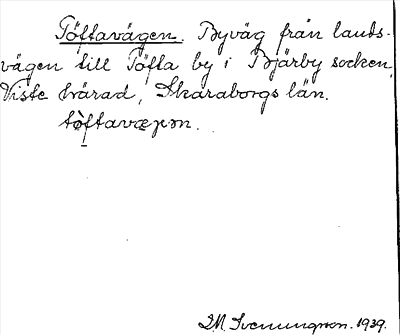 Töftavägen. Byväg från lands-
vägen till Töfta by i Bjärby socken,
Viste härad, Skaraborgs län.
tòftavæγən.
S.M. Svenungson. 1939.